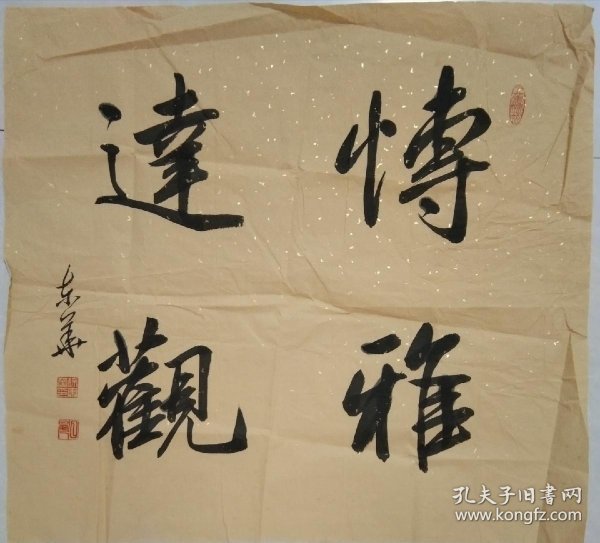 博雅
達觀
东華
孔夫子旧书网
www.kongfz.com